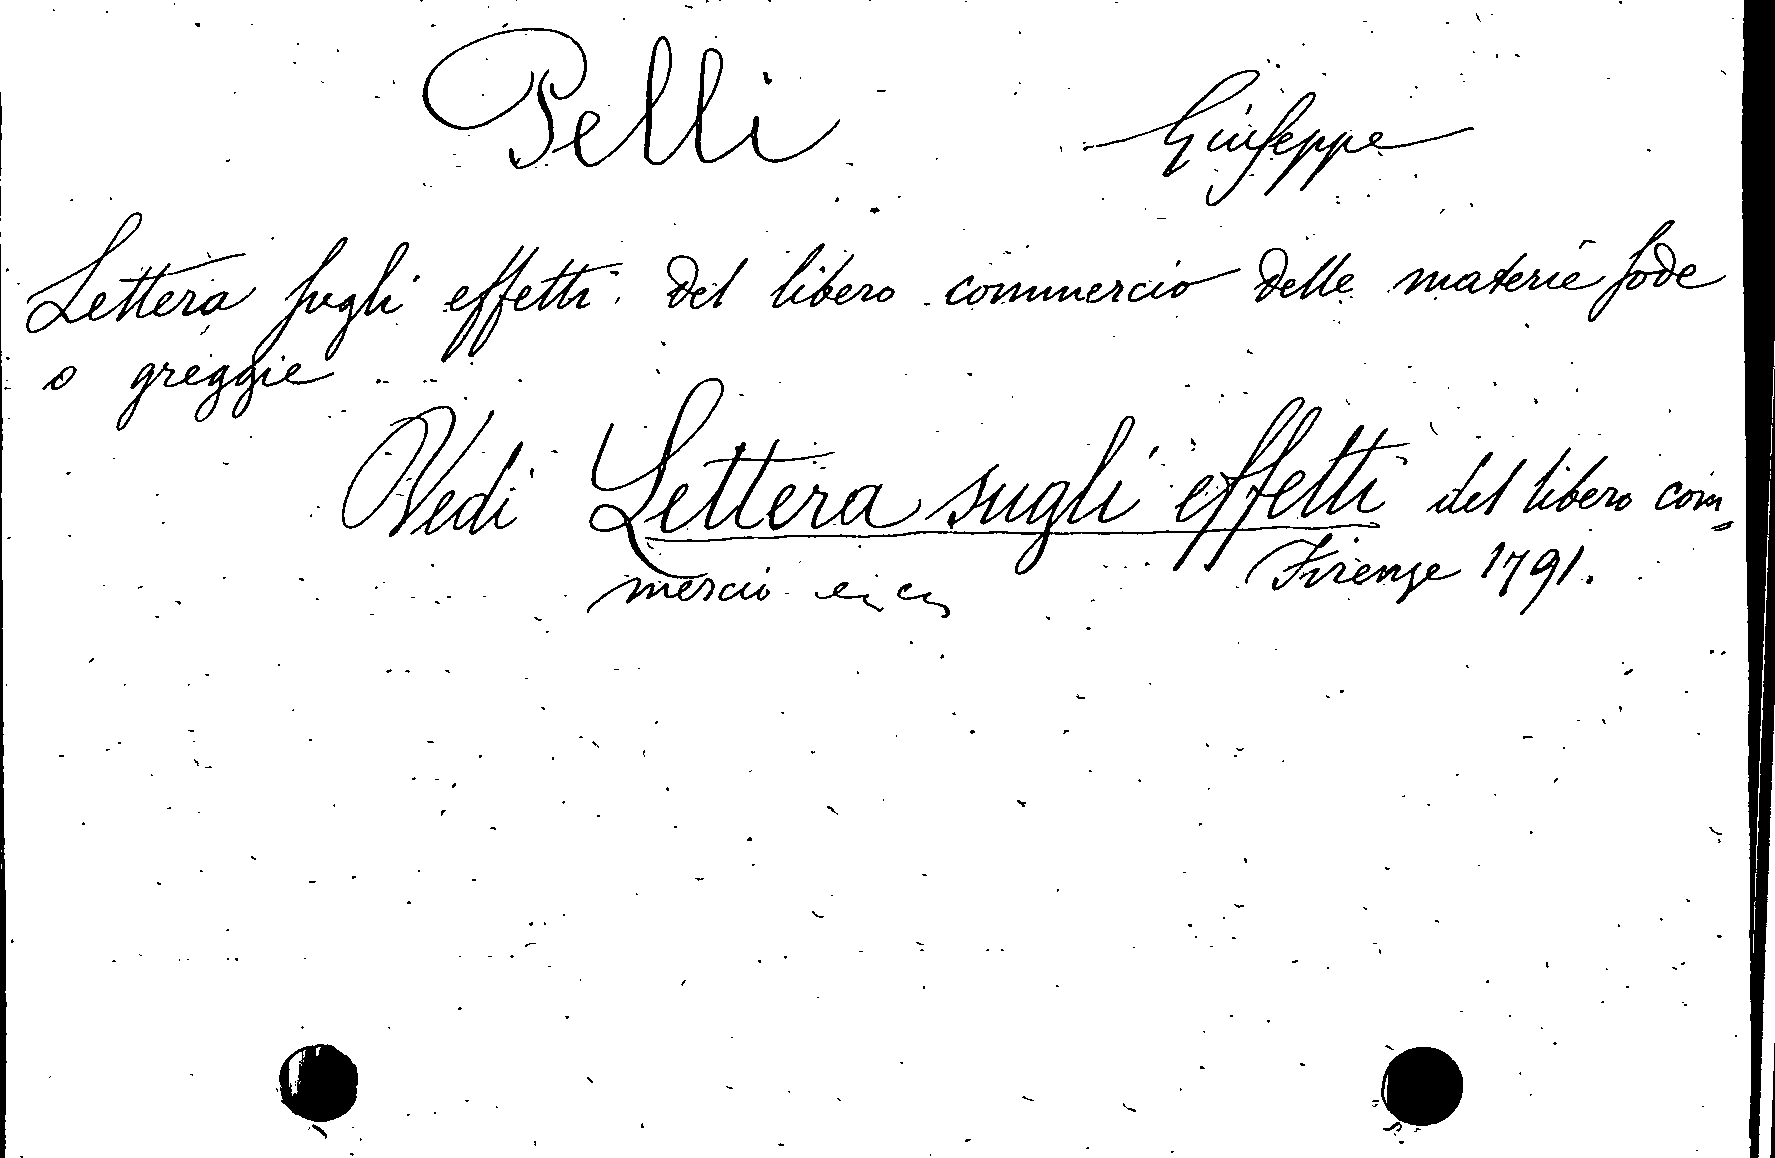 Pelli Giuseppe
Lettera sugli effetti del libero commercio delle materie sode
o greggie
Vedi Lettera sugli effetti del libero com=
mercio
Firenze 1791.